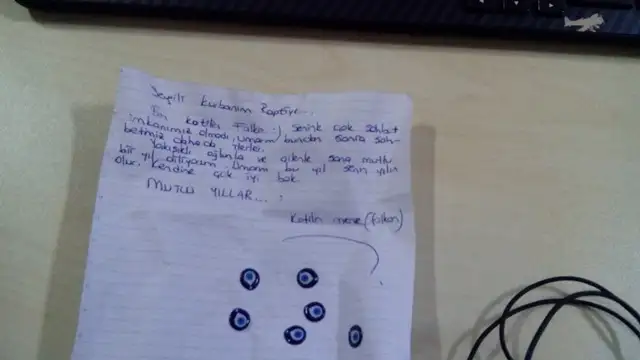 Sevgili kurbanım Raptiye...
Ben katilin Falko :) Seninle çok sohbet
imkanımız olmadı, umarım bundan sonra soh-
betimiz daha da ilerler.
Yakışıklı oğlunla ve ailenle sana mutlu
bir yıl diliyorum. Umarım bu yıl senin yılın
olur. Kendine çok iyi bak.
MUTLU YILLAR... :
Katilin (falkon)